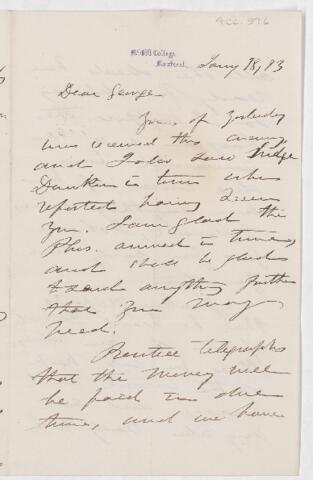 Acc. 976
McGill College,
Montreal.
Jany 18, 93
Dear George
Yours of Yesterday
was received this evening,
and I also saw Judge
Dunkin in town who
reported having seen
you. I am glad the
Phos. arrived in time,
and shall be glad
to send anything further
that you may
need.
Prentice telegraphs
that the money will
be paid in due
time, and we have